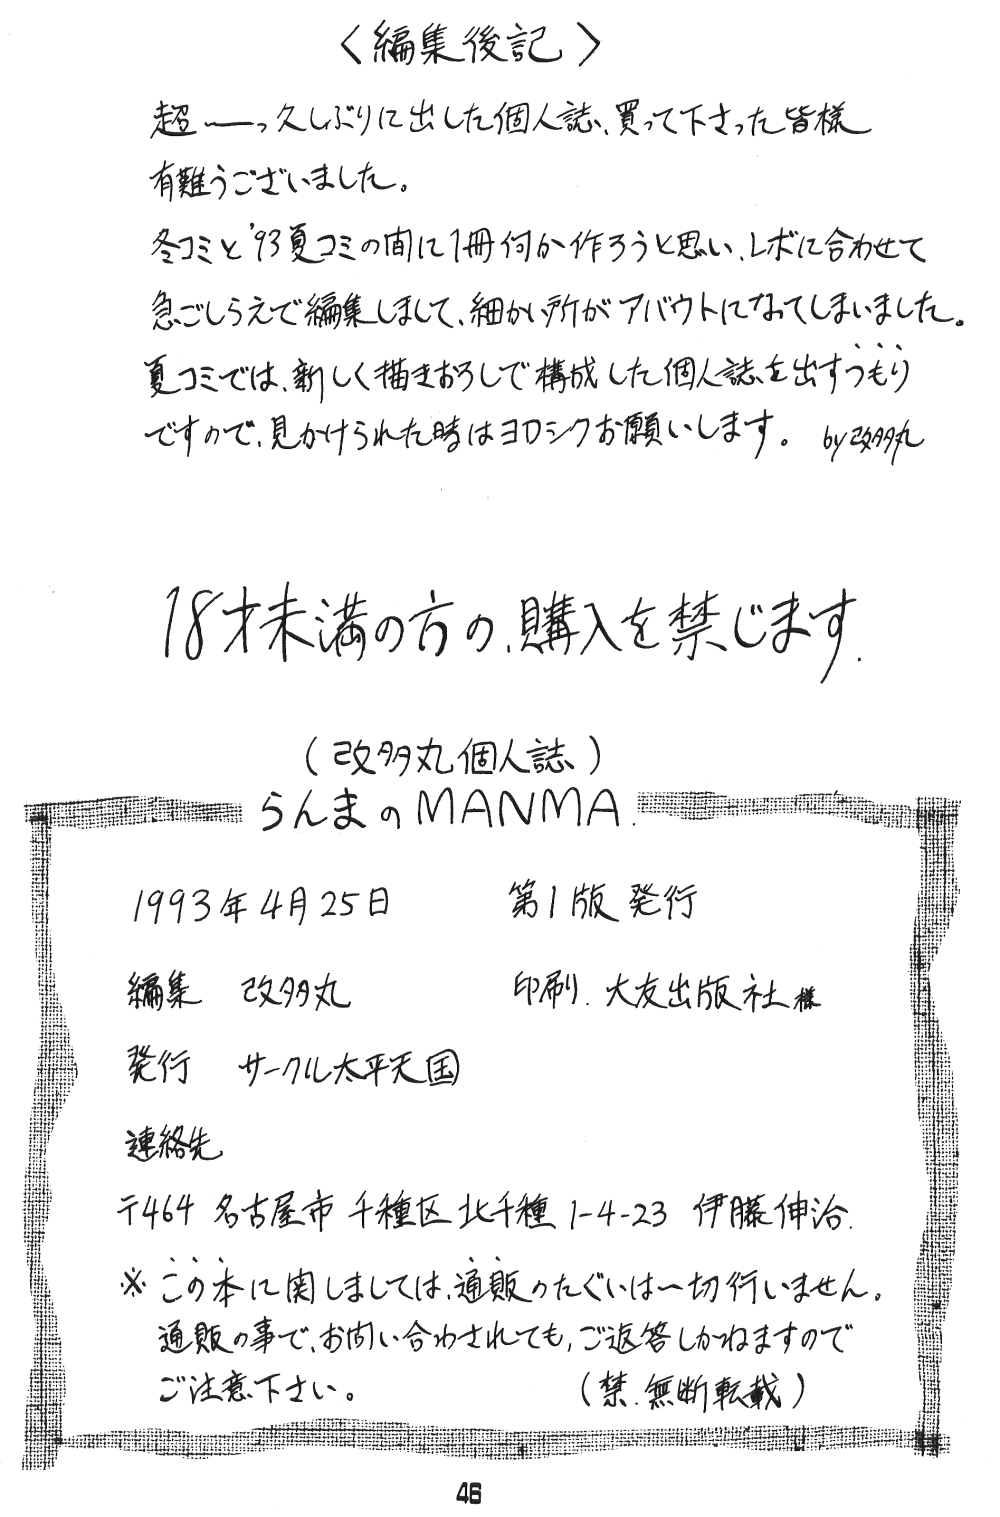 〈編集後記〉
超――っ久しぶりに出した個人誌、買って下さった皆様
有難うございました。
冬コミと'93夏コミの間に1冊何か作ろうと思い、レボに合わせて
急ごしらえで編集しまして、細かい所がアバウトになってしまいました。
夏コミでは、新しく描きおろしで構成した個人誌を出すつもり
ですので、見かけられた時はヨロシクお願いします。 by改多丸
18才未満の方の、購入を禁じます.
(改多丸個人誌)
らんまのMANMA.
1993年4月25日 第1版発行
編集 改多丸 印刷. 大友出版社様
発行 サークル太平天国
連絡先
〒464 名古屋市千種区北千種1-4-23 伊藤伸治.
※この本に関しましては、通販のたぐいは一切行いません。
通販の事で、お問い合わされても、ご返答しかねますので
ご注意下さい。 (禁.無断転載)
46